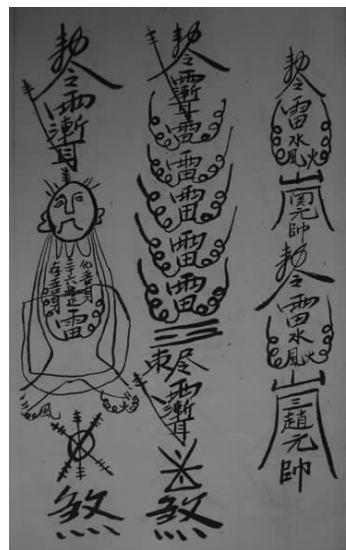 勅令雷水風火山関元帥
勅令雷水風火山三趙元帥
勅令雨漸耳雷雷雷雷雷雷
雨漸耳
煞
勅令雨漸耳
雷
風火
煞